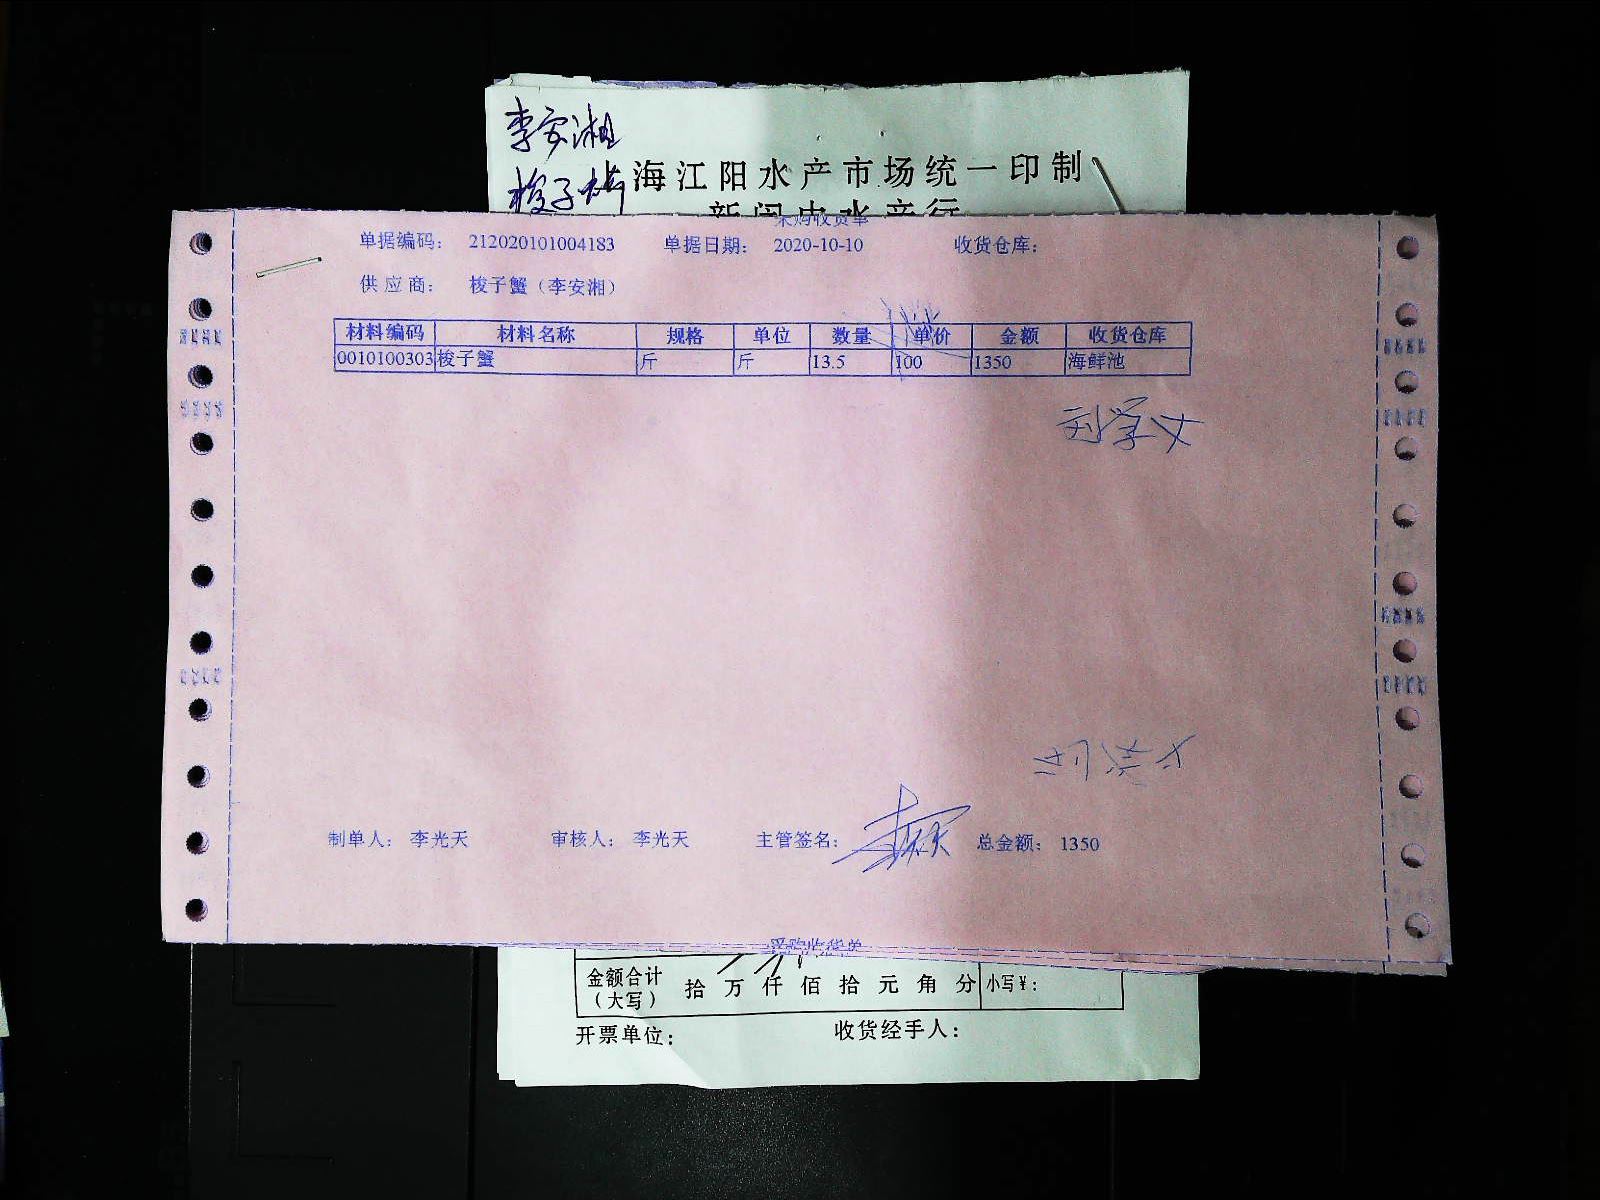 李安湘
梭子
海江阳水产市场统一印制
采购收货单
单据编码： 212020101004183 单据日期： 2020-10-10 收货仓库：
供应商： 梭子蟹（李安湘）
材料编码 材料名称 规格 单位 数量 单价 金额 收货仓库
0010100303 梭子蟹 斤 斤 13.5 100 1350 海鲜池
制单人： 李光天 审核人： 李光天 主管签名： 总金额： 1350
采购收货单
金额合计 拾万仟佰拾元角分 小写¥：
（大写）
开票单位： 收货经手人：